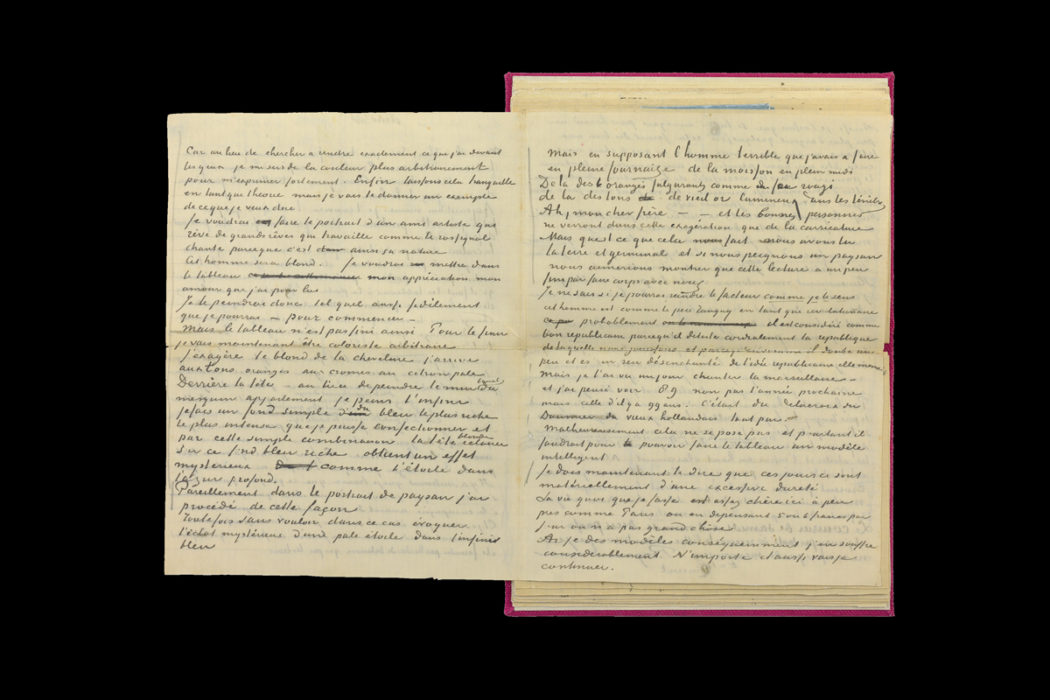 Car au lieu de chercher a rendre exactement ce que j'ai devant
les yeux je me sers de la couleur plus arbitrairement
pour m'exprimer fortement. Enfin laissons cela tranquille
en tant que theorie mais je vais te donner un exemple
de ce que je veux dire.
Je voudrais faire le portrait d'un ami artiste qui
rêve de grands rêves qui travaille comme le rossignol
chante parceque c'est ainsi sa nature
Cet homme sera blond. Je voudrais mettre dans
le tableau mon appréciation mon
amour que j'ai pour lui
Je le peindrai donc tel quel aussi fidèlement
que je pourrai – pour commencer –
Mais le tableau n'est pas fini ainsi Pour le finir
je vais maintenant être coloriste arbitraire
J'exagère le blond de la chevelure j'arrive
aux tons oranges aux cromes au citron pâle
Derrière la tête – au lieu de peindre le mur banal du
mesquin appartement je peins l'infini
je fais un fond simple du bleu le plus riche
le plus intense que je puisse confectionner et
par cette simple combinaison la tête blonde éclairée
sur ce fond bleu riche obtient un effet
mystérieux comme l'étoile dans
l'azur profond.
Pareillement dans le portrait de paysan j'ai
procédé de cette façon
Toutefois sans vouloir dans ce cas évoquer
l'éclat mystérieux d'une pale etoile dans l'infini
bleu
Mais en supposant l'homme terrible que j'avais a faire
en pleine fournaise de la moisson en plein midi
De la des oranges fulgurants comme du fer rougi
de la des tons de vieil or lumineux dans les ténèbres
Ah, mon cher frère – – et les bonnes personnes
ne verront dans cette exagération que de la caricature
Mais quest ce que cela nous fait nous avons lu
la terre et germinal et si nous peignons un paysan
nous aimerions montrer que cette lecture a un peu
fini par faire corps avec nous
Je ne sais si je pourrai rendre le facteur comme je le sens
cet homme est comme le père Tanguy en tant que revolutionnaire
probablement il est considéré comme
bon republicain parcequ'il déteste cordialement la republique
de laquelle nous jouissons et parcequ'en somme il doute un
peu et est un peu désenchanté de l'idée republicaine elle même
Mais je l'ai vu un jour chanter la marseillaise
et j'ai pensé voir 89 non pas l'année prochaine
mais celle d'il y a 99 ans. C'était du Delacroix du
Daumier du vieux hollandais tout pur –
Malheureusement cela ne se pose pas et pourtant il
faudrait pour pouvoir faire le tableau un modèle
intelligent
Je dois maintenant te dire que ces jours ci sont
matériellement d'une excessive dureté
La vie quoi que je fasse est assez chère ici à peu
près comme Paris ou en depensant 5 ou 6 francs par
jour on n'a pas grand chose
Ai-je des modèles conséquemment j'en souffre
considérablement N'importe et aussi vais je
continuer.